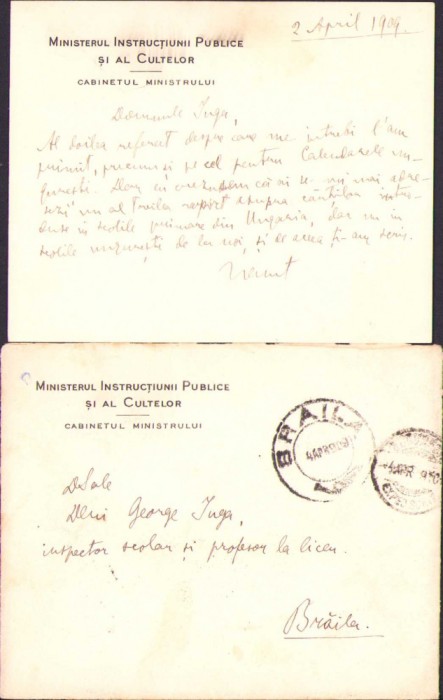 2 April 1909.
MINISTERUL INSTRUCȚIUNII PUBLICE
ȘI AL CULTELOR
CABINETUL MINISTRULUI
Domnule Inga,
Al doilea referat despre care me întrebi l'am
primit, precum și pe cel pentru Calendarele un-
gurești. Dar eu credeam că ai se-mi mai adre-
sezi un al treilea raport asupra cărților intro-
duse în școlile primare din Ungaria, dar nu în
școlile ungurești de la noi, și de aceea ți-am scris.
MINISTERUL INSTRUCȚIUNII PUBLICE
ȘI AL CULTELOR
CABINETUL MINISTRULUI
BRAILA
4 APR 909
APR 9
D Sale
Dlui George Inga,
inspector școlar și profesor la liceu.
Brăila.